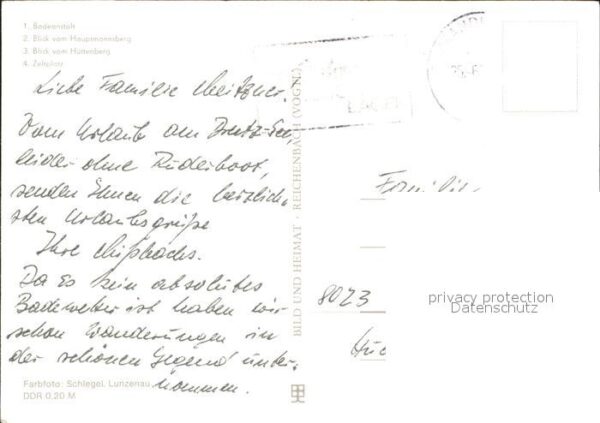 1. Badeanstalt
2. Blick vom Hauptmannsberg
3. Blick vom Hüttenberg
4. Zeltplatz
Liebe Familie Meitzner!
Vom Urlaub am
leider ohne Ruderboot,
senden Ihnen die herzlich-
sten Urlaubsgrüße
Ihre Mißbachs.
Da es kein absolutes
Badewetter ist haben wir
schon Wanderungen in
der schönen Gegend unter-
nommen.
Farbfoto: Schlegel, Lunzenau
DDR 0,20 M
BILD UND HEIMAT · REICHENBACH (VOGTL)
Familie
8023
privacy protection
Datenschutz